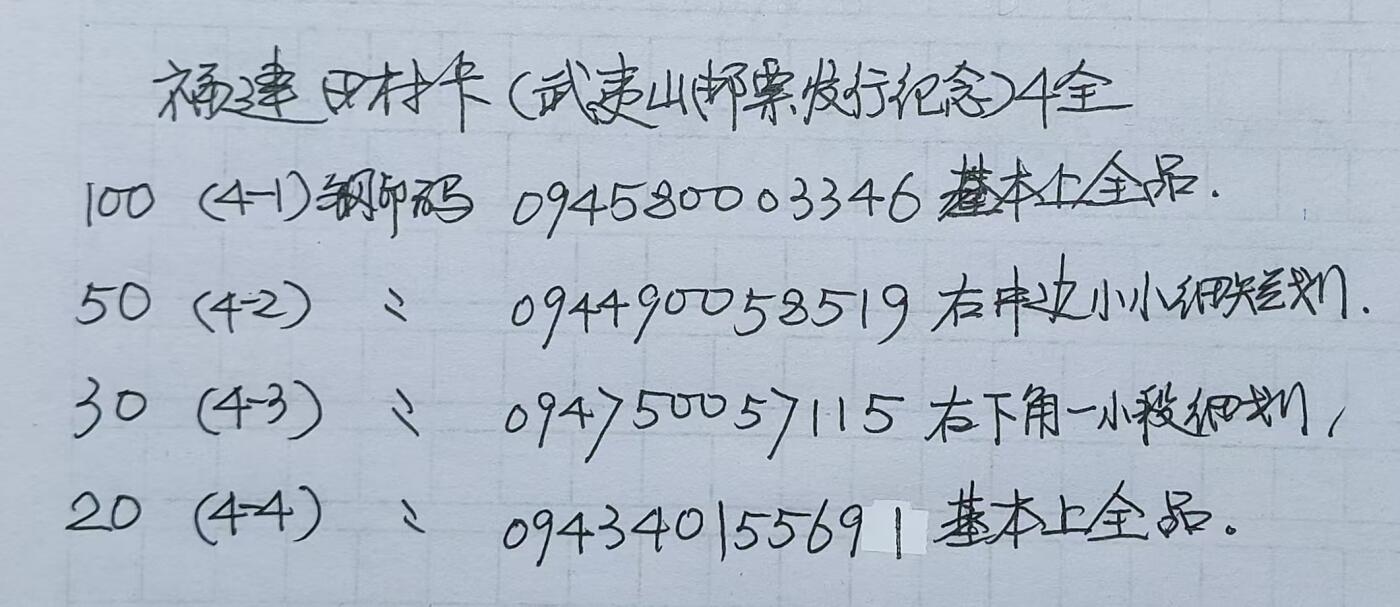 福建田村卡(武夷山邮票发行纪念)4全
100 (4-1)钢印码 094580003346 基本上全品.
50 (4-2) 〃 094490058519 右中边小小细短划.
30 (4-3) 〃 094750057115 右下角一小段细划,
20 (4-4) 〃 094340155691 基本上全品。